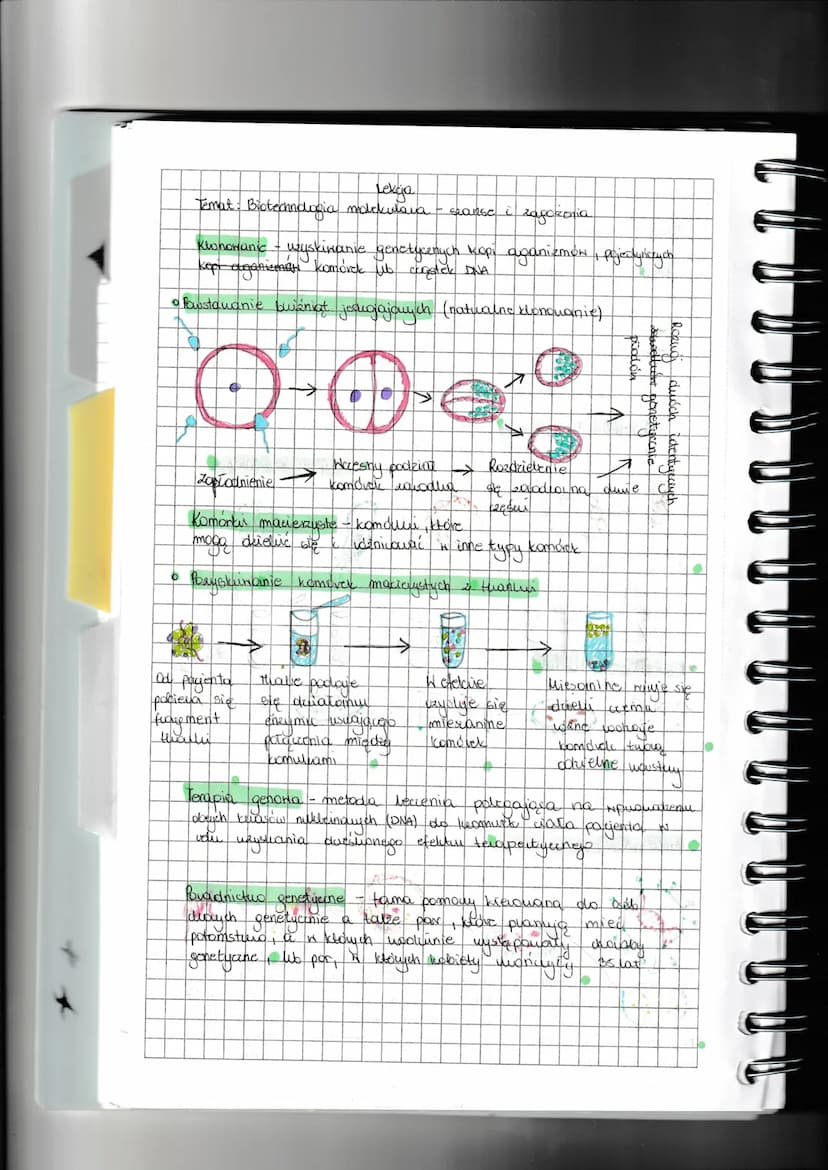 Lekcja
Temat: Biotechnologia molekularna – szanse i zagrożenia
Klonowanie – uzyskiwanie genetycznych kopi oganizmów, pojedyńczych
kopi organizmów komórek lub cząstek DNA
Powstawanie bliźniąt jednojajowych (naturalne klonowanie)
Rozwój dwóch identycznych
genetycznie
płodów
Zapłodnienie → Wczesny podział → Rozdzielenie
komórek zarodka się zarodka na dwie
części
Komórki macierzyste – komórki, które
mogą dzielić się i różnicować w inne typy komórek
Pozyskiwanie komórek macierzystych z tkanki
Od pacjenta
pobiera się
fragment
tkanki
Tkankę poddaje
się działaniu
enzymu usuwającego
połączenia między
komórkami
W efekcie
uzyskuje się
mieszaninę
komórek
Mieszaninę wiruje się
dzięki czemu
różne rodzaje
komórek tworzą
oddzielne warstwy
Terapia genowa – metoda leczenia polegająca na wprowadzeniu
obcych kwasów nukleinowych (DNA) do komórek ciała pacjenta w
celu uzyskania określonego efektu terapeutycznego
Poradnictwo genetyczne – forma pomocy kierowaną do osób
chorych genetycznie a także par, które planują mieć
potomstwo, a w których rodzinie występowały choroby
genetyczne, lub par, w których kobiety ukończyły 35 lat